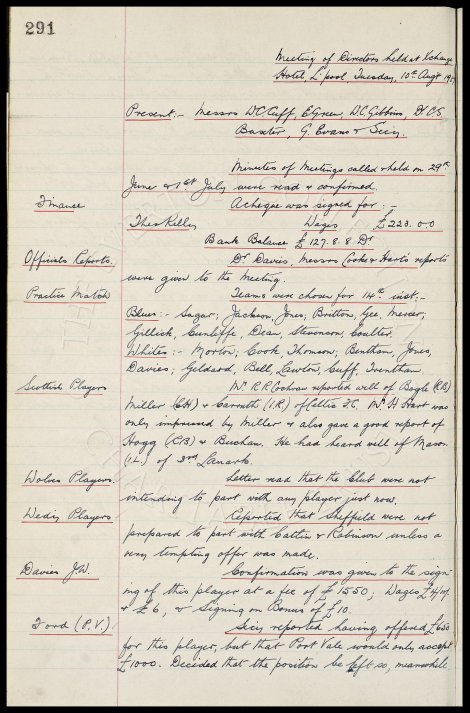 291
Meeting of Directors held at Xchange
Hotel, L'pool, Tuesday, 10th Augt 19
Present:- Messrs W.C. Cuff, E. Green, W.C. Gibbins, Dr C.S.
Baxter, G. Evans & Secy.
Minutes of Meetings called & held on 29th
June & 1st July were read & confirmed.
Finance
A cheque was signed for :-
Theo Kelly Wages £223.0.0
Bank Balance £127.8.8 Dr
Officials Reports.
Dr Davies, Messrs Cooke & Hart's reports
were given to the Meeting.
Practice Match
Teams were chosen for 14th inst.:-
Blues :- Sagar; Jackson, Jones; Britton, Gee, Mercer;
Gillick, Cunliffe, Dean, Stevenson, Coulter.
Whites :- Morton; Cook, Thomson; Bentham, Jones,
Davies; Geldard, Bell, Lawton, Cuff, Trentham.
Scottish Players
Mr R.R. Cochran reported well of Bogle (R.B.)
Miller (C.H.) & Carruth (I.R.) of Celtic F.C. Mr H. Hart was
only impressed by Miller & also gave a good report of
Hogg (R.B) & Buchan. He had heard well of Mason
(I.L.) of 3rd Lanark.
Wolves Players.
Letter read that the Club were not
intending to part with any player just now.
Wedy Players
Reported that Sheffield were not
prepared to part with Catlin & Robinson unless a
very tempting offer was made.
Davies J.W.
Confirmation was given to the sign-
ing of this player at a fee of £1550; Wages
& £6, & Signing on Bonus of £10.
Ford (P.V.)
Secy reported having offered £650
for this player, but that Port Vale would only accept
£1000. Decided that the position be left so, meanwhile